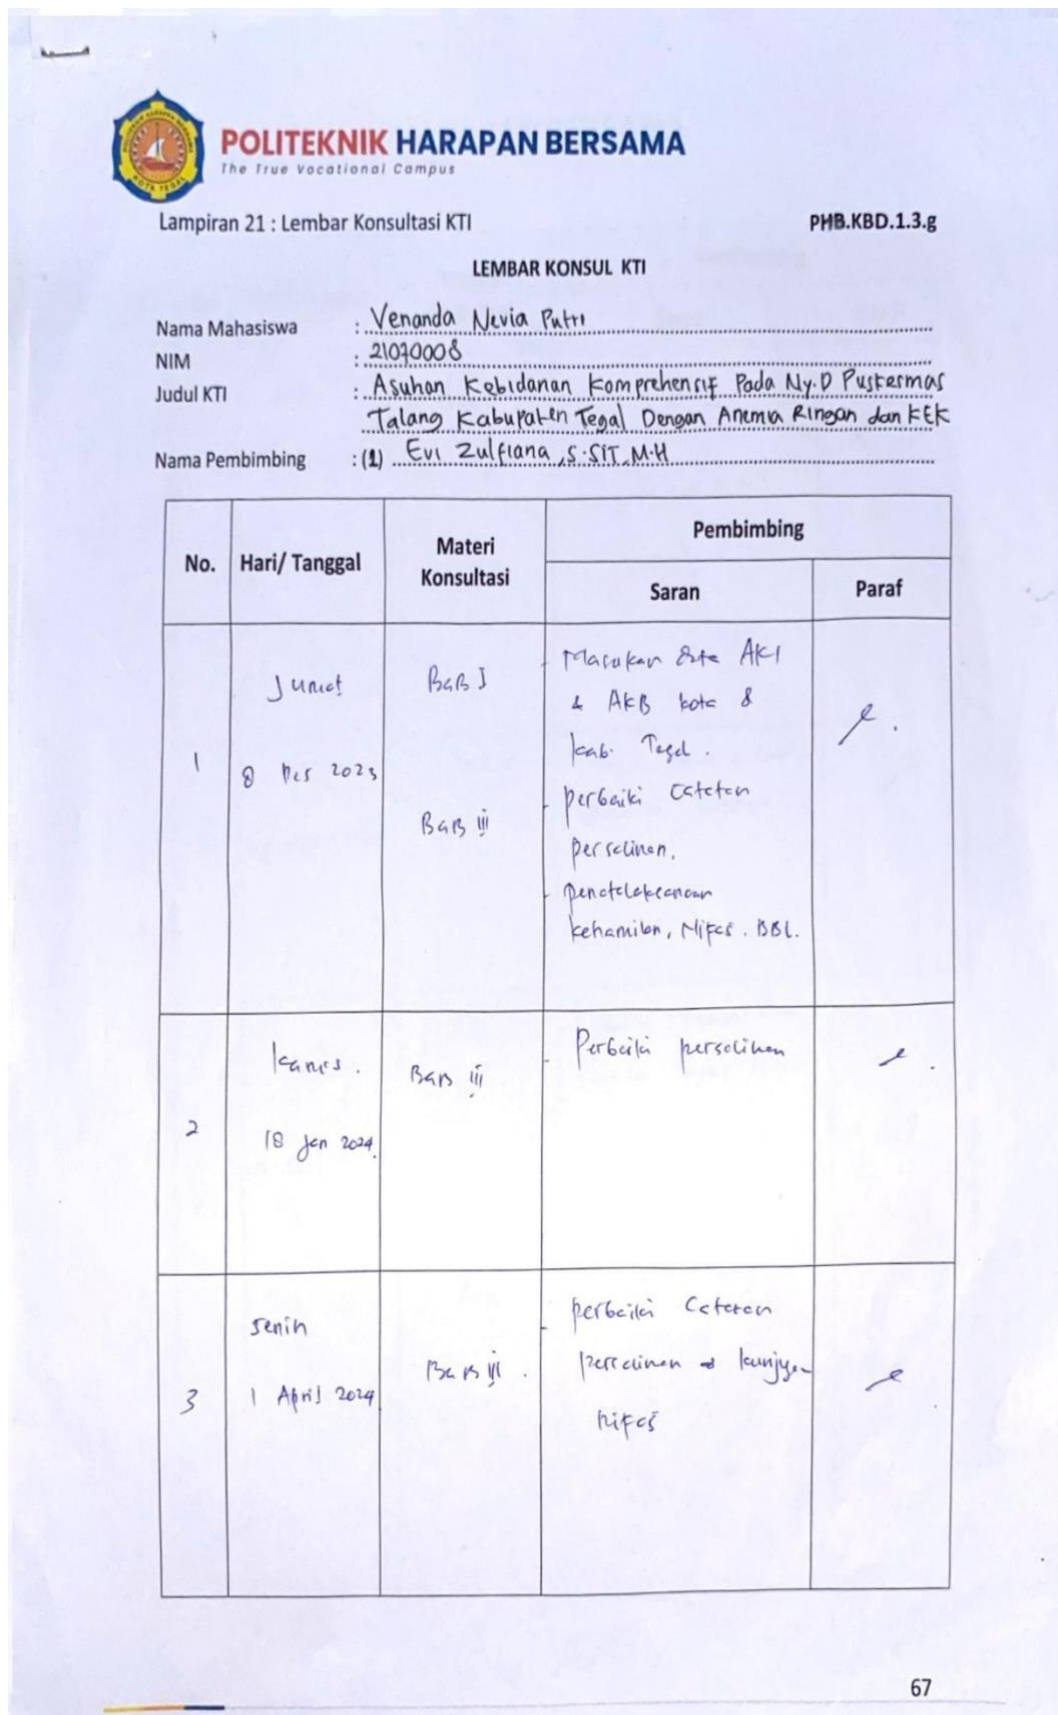 POLITEKNIK HARAPAN BERSAMA
The True Vocational Campus
Lampiran 21 : Lembar Konsultasi KTI
PHB.KBD.1.3.g
LEMBAR KONSUL KTI
Nama Mahasiswa : Venanda Nevia Putri
NIM : 21070008
Judul KTI : Asuhan Kebidanan Komprehensif Pada Ny.D Puskesmas
Talang Kabupaten Tegal Dengan Anemia Ringan dan KEK
Nama Pembimbing : (1) Evi Zulfiana, S.SIT, M.H
No. Hari/ Tanggal Materi Konsultasi Pembimbing
Saran Paraf
1
Jumat
8 Des 2023
BAB I
BAB III
- Masukan data AKI
& AKB kota &
kab. Tegal.
- perbaiki catatan
persalinan.
- penatalaksanaan
kehamilan, Nifas. BBL.
2
Kamis.
18 Jan 2024.
BAB III
- Perbaiki persalinan
3
Senin
1 April 2024
BAB III.
- perbaiki catatan
persalinan & kunjungan
nifas
67